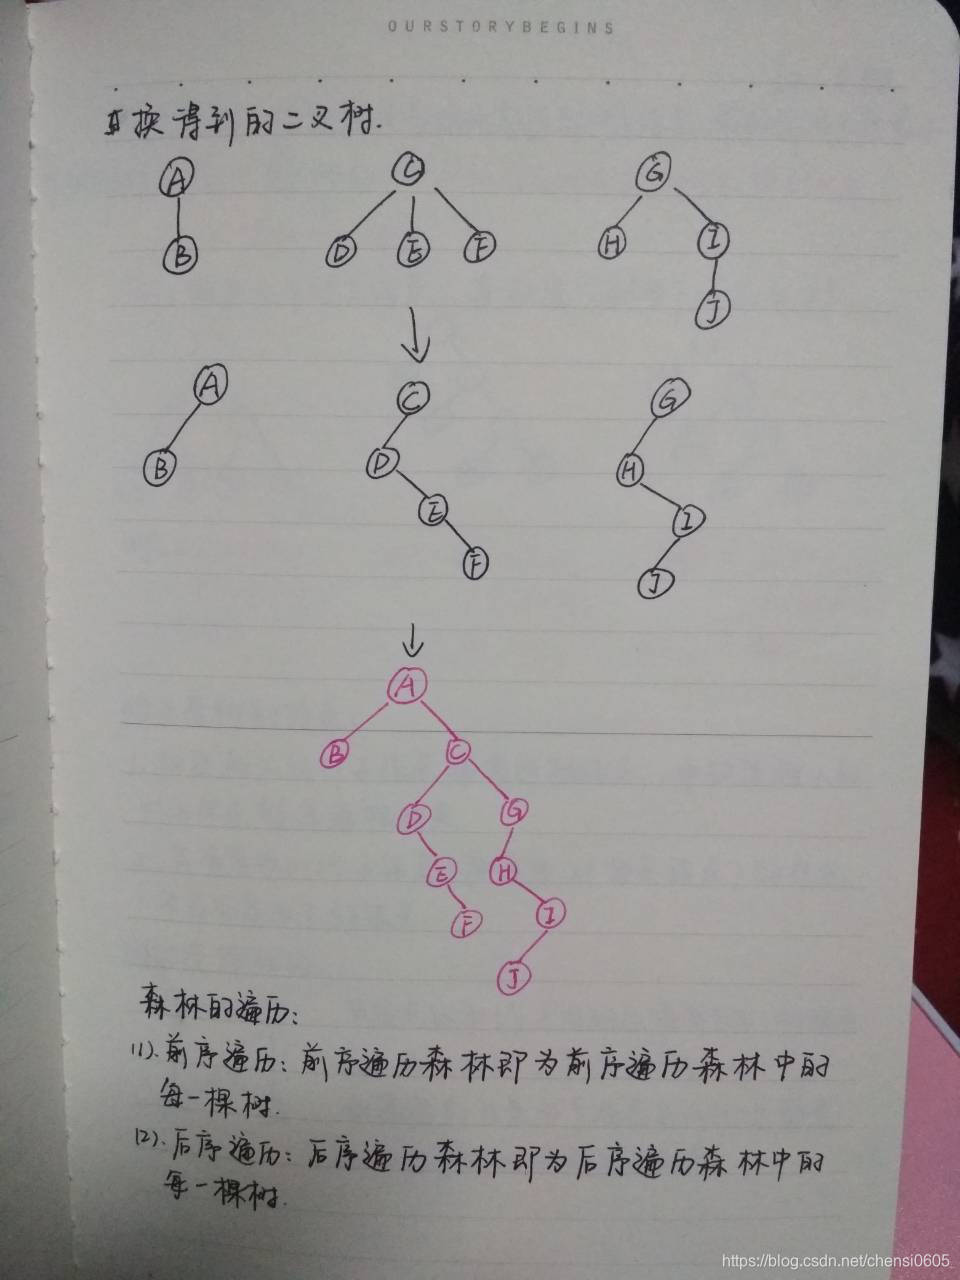 OURSTORYBEGINS
转换得到的二叉树.
A C G
B D E F H I
J
A C G
B D H
E I
F J
A
B C
D G
E H
F I
J
森林的遍历:
(1).前序遍历:前序遍历森林即为前序遍历森林中的
每一棵树.
(2).后序遍历:后序遍历森林即为后序遍历森林中的
每一棵树.
https://blog.csdn.net/chensi0605